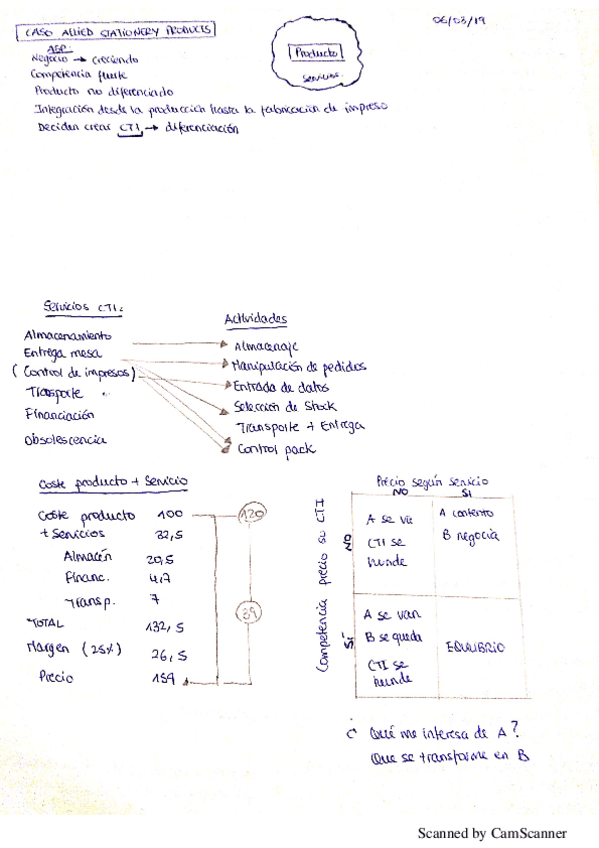 CASO ALLIED STATIONERY PRODUCTS
06/03/19
ASP:
Negocio → creciendo
Competencia fuerte
Producto no diferenciado
Integración desde la producción hasta la fabricación de impreso
Deciden crear CTI → diferenciación
Producto
Servicios
Servicios CTI:
Almacenamiento
Entrega mesa
(Control de impresos)
Transporte
Financiación
Obsolescencia
Actividades
Almacenaje
Manipulación de pedidos
Entrada de datos
Selección de Stock
Transporte + Entrega
Control pack
Coste producto + Servicio
Coste producto 100
+ Servicios 32,5
Almacén 20,5
Financ. 4,7
Transp. 7
TOTAL 132,5
Margen (25%) 26,5
Precio 159
120
39
Precio según servicio
NO SI
Competencia precio su CTI
NO
SÍ
A se va
CTI se
hunde
A contento
B negocia
A se van
B se queda
CTI se
hunde
EQUILIBRIO
¿Qué me interesa de A?
Que se transforme en B
Scanned by CamScanner